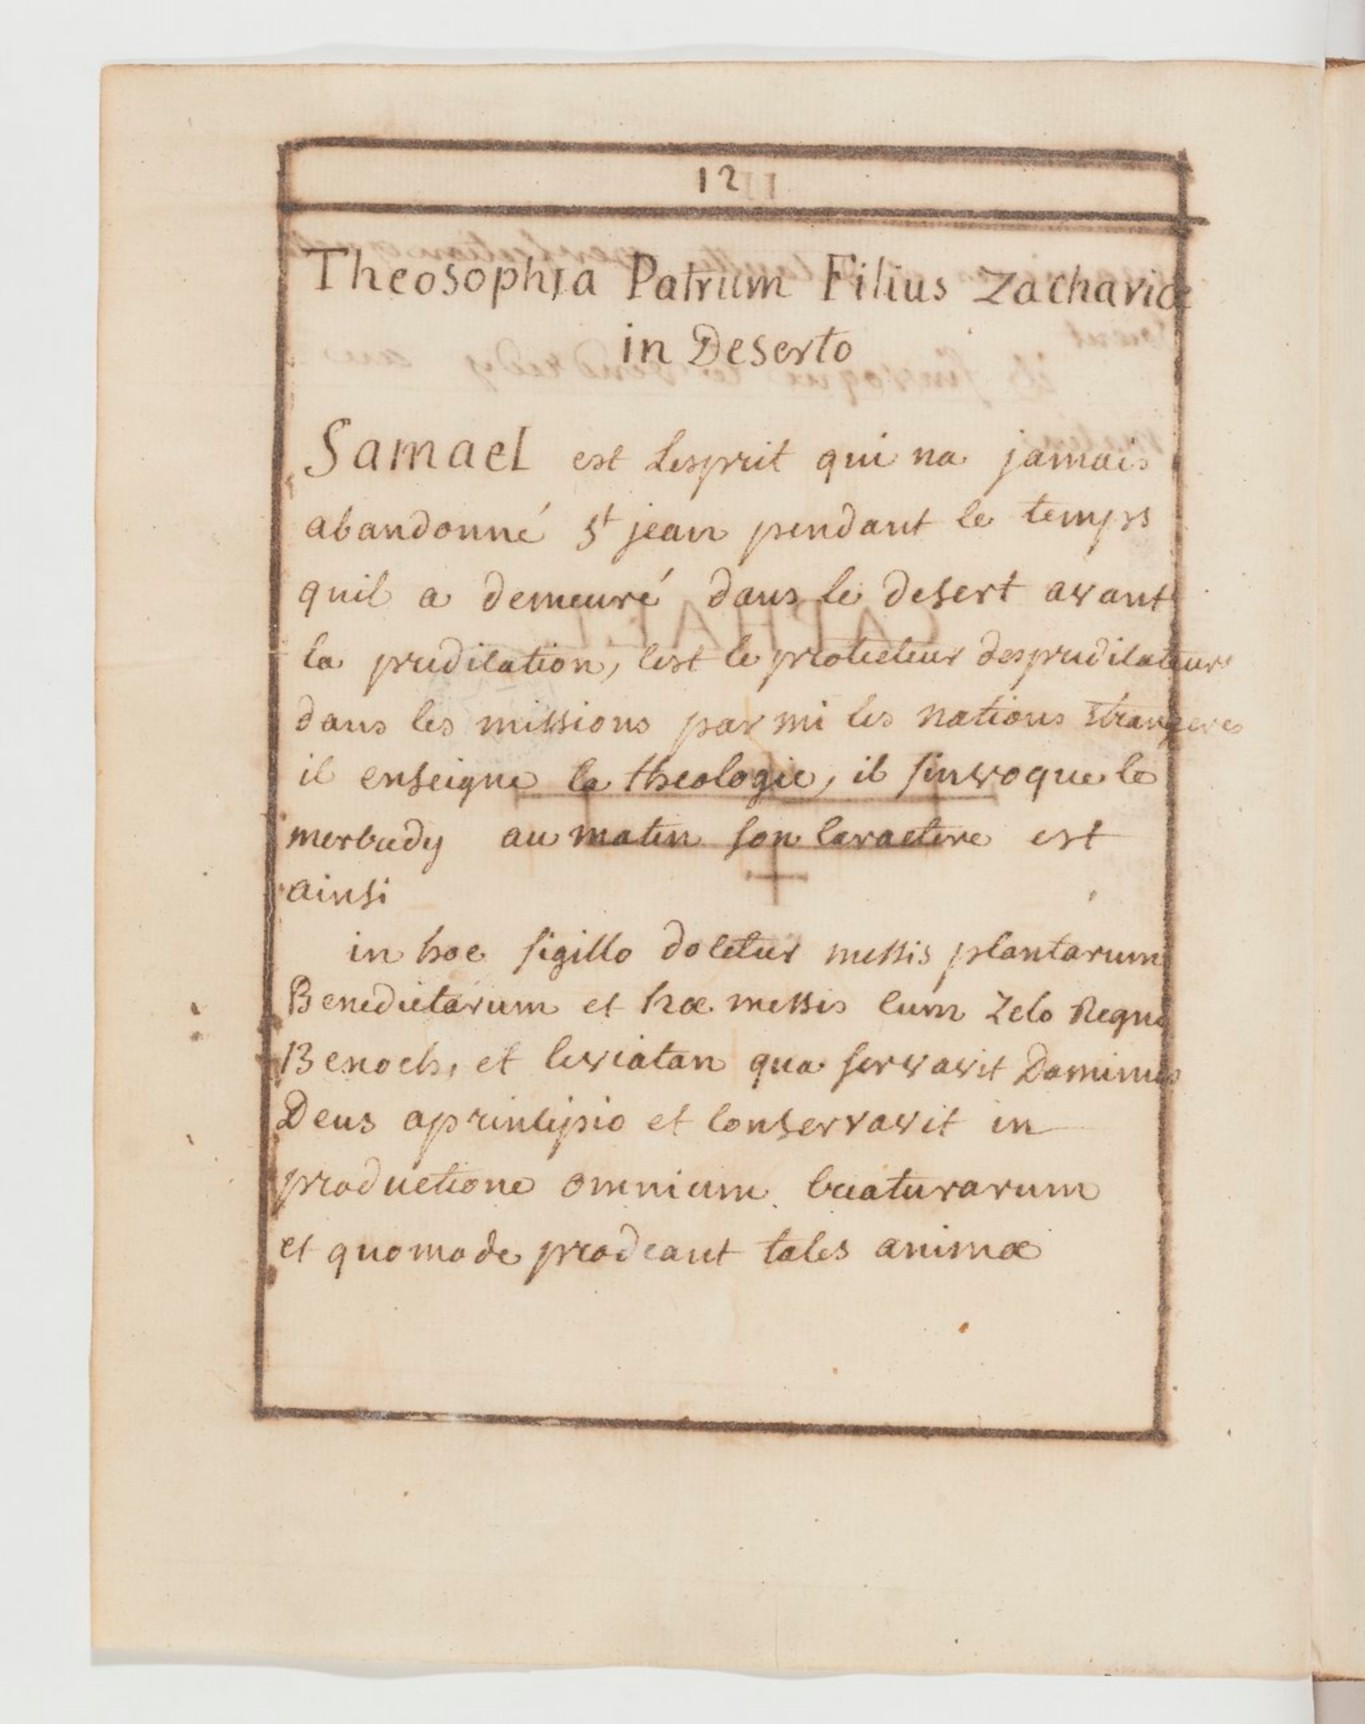 12
Theosophia Patrum Filius Zachariæ
in Deserto
Samael est Lesprit qui na jamais
abandonné st jean pendant le temps
quil a demeuré dans le desert avant
la predication, cest le protecteur des predicateurs
dans les missions par mi les nations étrangeres
il enseigne la theologie, il sinvoque le
mercredy au matin son caractere est
ainsi
in hoc sigillo docetur messis plantarum
Benedictarum et hæ messis cum Zelo Regni
et leviatan qua servavit Dominus
Deus aprincipio et conservavit in
productione omnium creaturarum
et quomode prodeant tales animæ